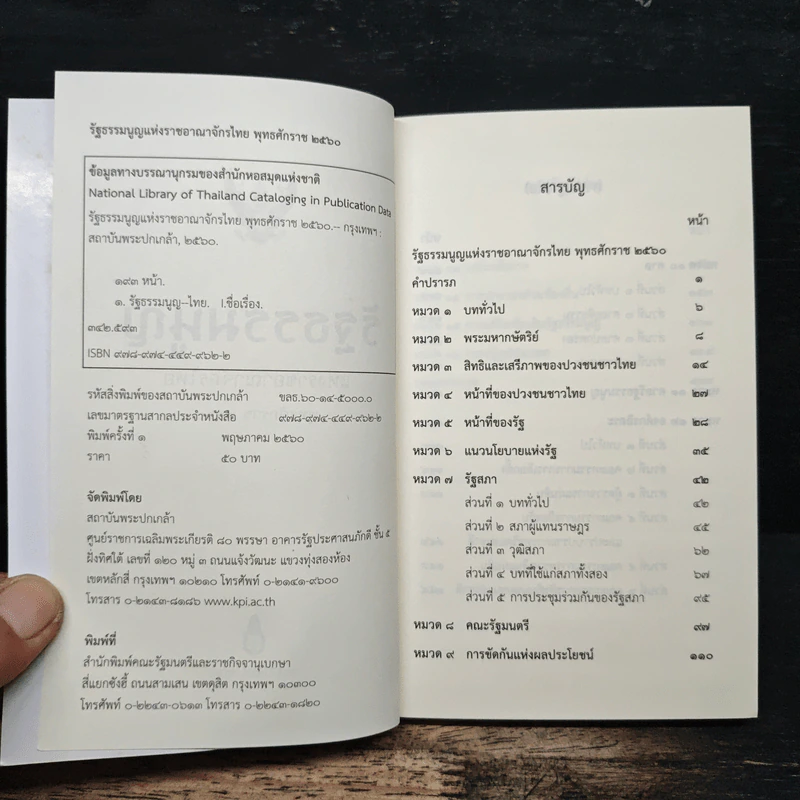 รัฐธรรมนูญแห่งราชอาณาจักรไทย พุทธศักราช ๒๕๖๐
ข้อมูลทางบรรณานุกรมของสำนักหอสมุดแห่งชาติ
National Library of Thailand Cataloging in Publication Data
รัฐธรรมนูญแห่งราชอาณาจักรไทย พุทธศักราช ๒๕๖๐.-- กรุงเทพฯ :
สถาบันพระปกเกล้า, ๒๕๖๐.
๑๙๓ หน้า.
๑. รัฐธรรมนูญ--ไทย. I.ชื่อเรื่อง.
๓๔๒.๕๙๓
ISBN ๙๗๘-๙๗๔-๔๔๙-๙๖๒-๒
รหัสสิ่งพิมพ์ของสถาบันพระปกเกล้า ขลธ.๖๐-๑๔-๕๐๐๐.๐
เลขมาตรฐานสากลประจำหนังสือ ๙๗๘-๙๗๔-๔๔๙-๙๖๒-๒
พิมพ์ครั้งที่ ๑ พฤษภาคม ๒๕๖๐
ราคา ๕๐ บาท
จัดพิมพ์โดย
สถาบันพระปกเกล้า
ศูนย์ราชการเฉลิมพระเกียรติ ๘๐ พรรษา อาคารรัฐประศาสนภักดี ชั้น ๕
ฝั่งทิศใต้ เลขที่ ๑๒๐ หมู่ ๓ ถนนแจ้งวัฒนะ แขวงทุ่งสองห้อง
เขตหลักสี่ กรุงเทพฯ ๑๐๒๑๐ โทรศัพท์ ๐-๒๑๔๑-๙๖๐๐
โทรสาร ๐-๒๑๔๓-๘๑๘๖ www.kpi.ac.th
พิมพ์ที่
สำนักพิมพ์คณะรัฐมนตรีและราชกิจจานุเบกษา
สี่แยกซังฮี้ ถนนสามเสน เขตดุสิต กรุงเทพฯ ๑๐๓๐๐
โทรศัพท์ ๐-๒๒๔๓-๐๖๑๓ โทรสาร ๐-๒๒๔๓-๑๘๒๐
สารบัญ
หน้า
รัฐธรรมนูญแห่งราชอาณาจักรไทย พุทธศักราช ๒๕๖๐
คำปรารภ ๑
หมวด ๑ บททั่วไป ๖
หมวด ๒ พระมหากษัตริย์ ๘
หมวด ๓ สิทธิและเสรีภาพของปวงชนชาวไทย ๑๔
หมวด ๔ หน้าที่ของปวงชนชาวไทย ๒๗
หมวด ๕ หน้าที่ของรัฐ ๒๘
หมวด ๖ แนวนโยบายแห่งรัฐ ๓๕
หมวด ๗ รัฐสภา ๔๒
ส่วนที่ ๑ บททั่วไป ๔๒
ส่วนที่ ๒ สภาผู้แทนราษฎร ๔๕
ส่วนที่ ๓ วุฒิสภา ๖๒
ส่วนที่ ๔ บทที่ใช้แก่สภาทั้งสอง ๖๗
ส่วนที่ ๕ การประชุมร่วมกันของรัฐสภา ๙๕
หมวด ๘ คณะรัฐมนตรี ๙๗
หมวด ๙ การขัดกันแห่งผลประโยชน์ ๑๑๐